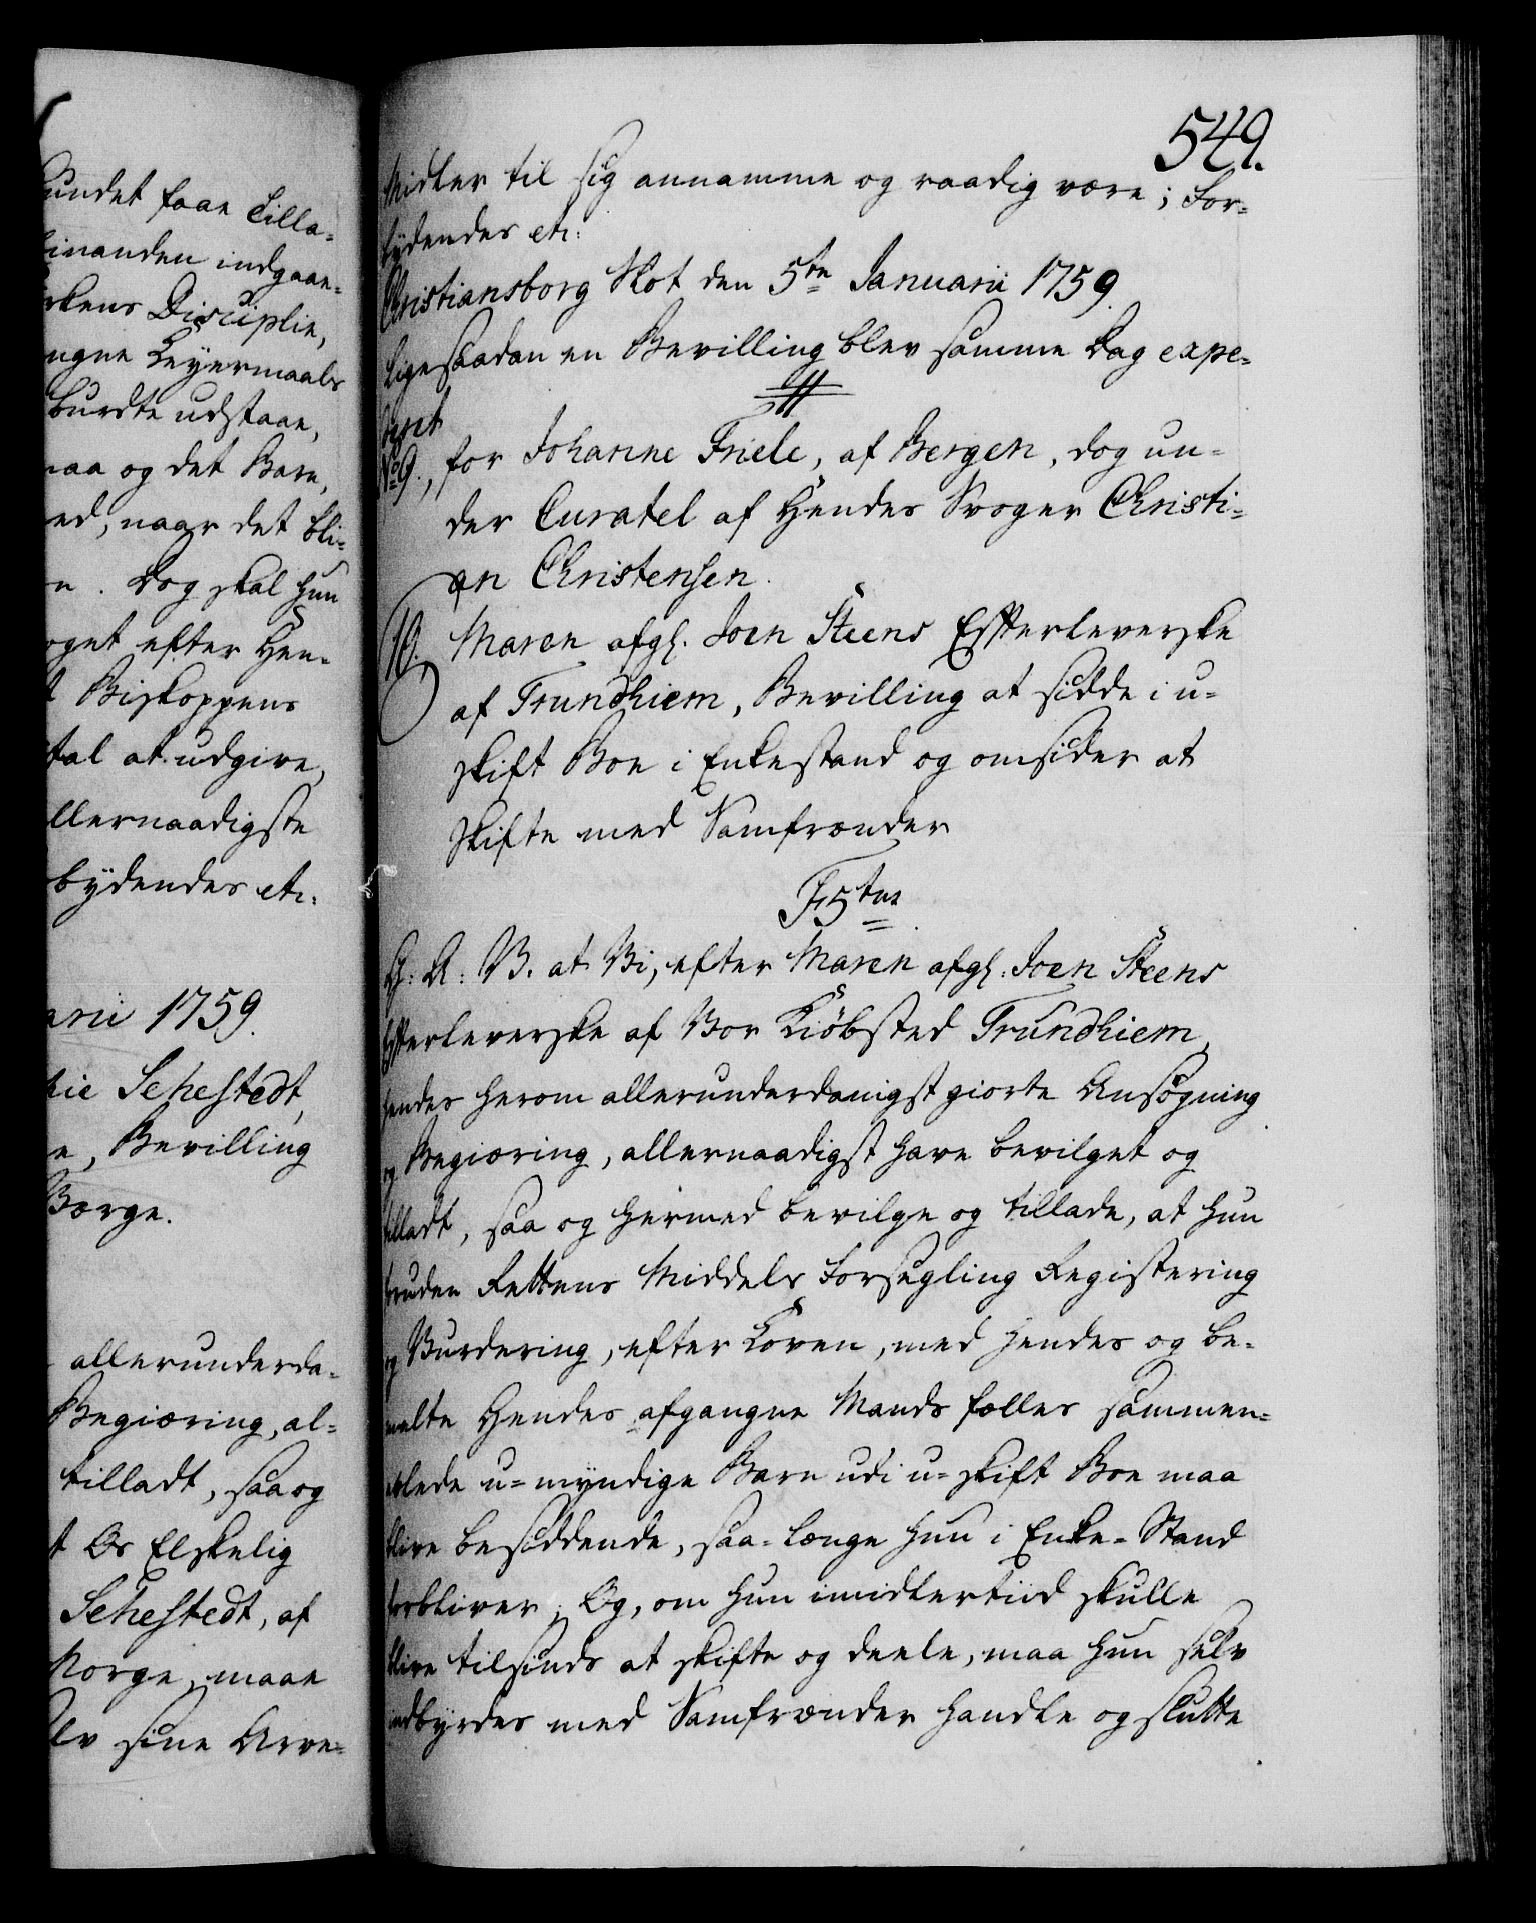 undet faae Tilla-
hinanden indgaae-
kens Disciplin,
ngne Leyermaals
burdte udstaae,
aa og det Barn,
ed, naar det bli-
n. Dog skal hun
oget efter Hen-
t Biskoppens
tal at udgive,
llernaadigste
bydendes etc:
arii 1759.
hie Sehestedt,
e, Bevilling
Borge.
allerunderda-
Begiæring, al-
tilladt, saa og
t Os Elskelig
Sehestedt, af
Norge, maae
lv sine Arve-
549.
Midler til sig annamme og raadig være; For-
bydendes etc:
Christiansborg Slot den 5te Januarii 1759.
Ligesaadan en Bevilling blev samme Dag expe-
deret
No 9., for Johanne Friele, af Bergen, dog un-
der Curatel af Hendes Svoger Christi-
an Christensen.
10. Maren afgl. Joen Steens Efterleverske
af Trundhiem, Bevilling at sidde i u-
skift Boe i Enkestand og omsider at
skifte med Samfrænder
F5tus
G: A: V. at Vi, efter Maren afgl: Joen Steens
Efterleverske af Vor Kiöbsted Trundhiem,
hendes herom allerunderdanigst giorte Ansøgning
og Begiæring, allernaadigst have bevilget og
tilladt, saa og hermed bevilge og tillade, at hun
foruden Rettens Middels Forsegling Registering
og Vurdering, efter Loven, med hendes og be-
melte Hendes afgangne Mands fælles sammen-
avlede u-myndige Børn udi u-skift Boe maa
blive besiddende, saa-længe hun i Enke-Stand
forbliver; Og, om hun imidlertiid skulle
blive tilsinds at skifte og deele, maa hun selv
indbyrdes med Samfrænder handle og slutte